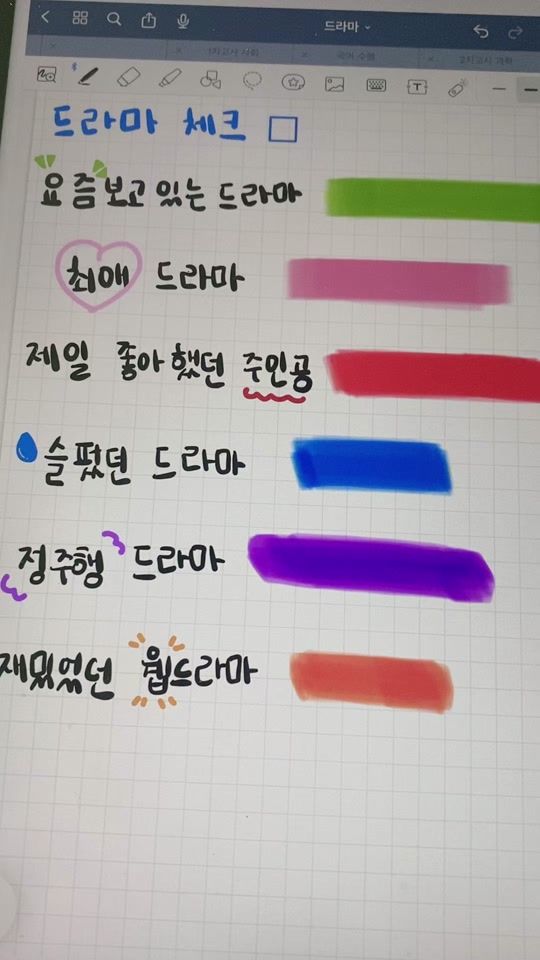 드라마
1차고사 사회
국어 수행
2차고사 과학
드라마 체크 □
요즘 보고 있는 드라마
최애 드라마
제일 좋아했던 주인공
슬펐던 드라마
정주행 드라마
재밌었던 웹드라마